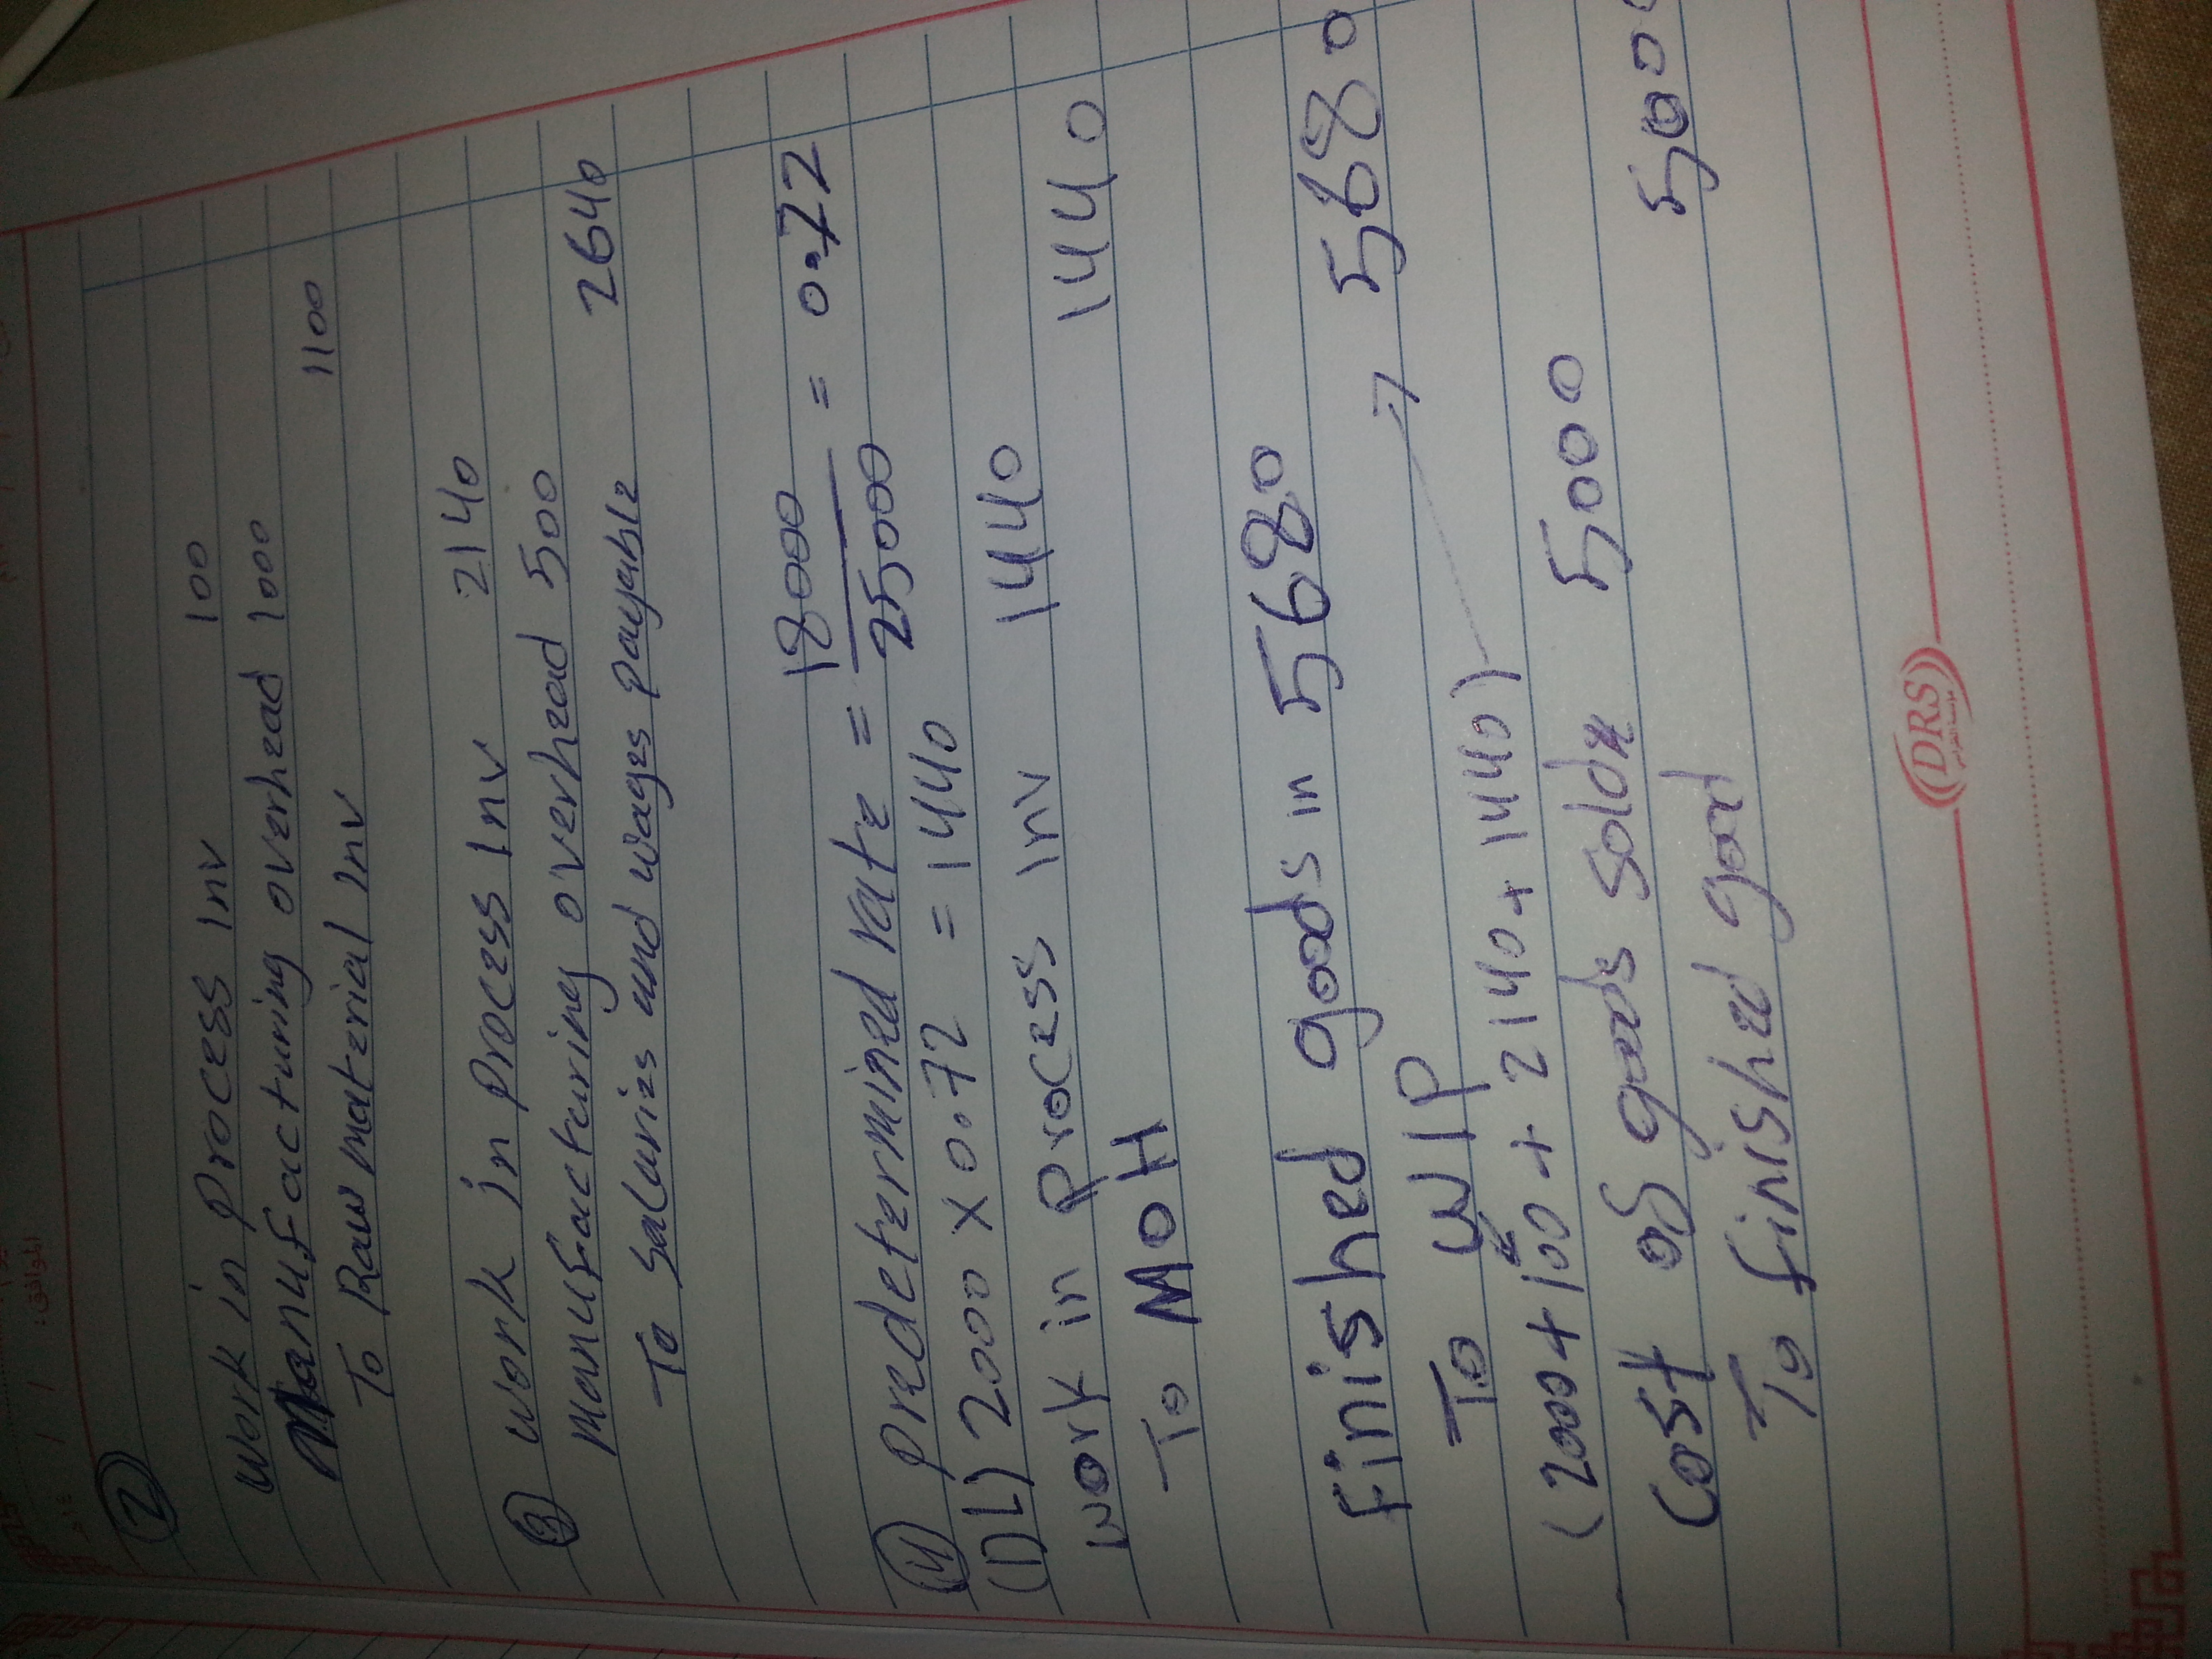 الموافق: / /
2
Work in process Inv 100
Manufacturing overhead 1000
To Raw material Inv 1100
3 Work in process Inv 2140
Manufacturing overhead 500
To Salaries and wages payable 2640
4 predetermined rate = 18000/25000 = 0.72
(DL) 2000 x 0.72 = 1440
Work in process Inv 1440
To MOH 1440
Finished goods in 5680
To WIP → 5680
(2000 + 100 + 2140 + 1440)
Cost of goods sold 5000
To Finished good 5000
DRS